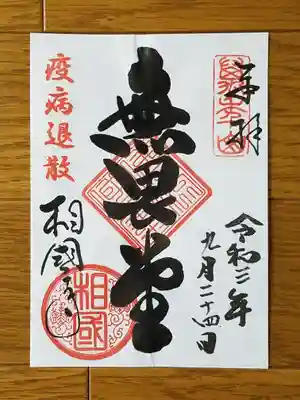 奉拝
令和三年
九月二十四日
無畏堂
疫病退散
相國寺
相国